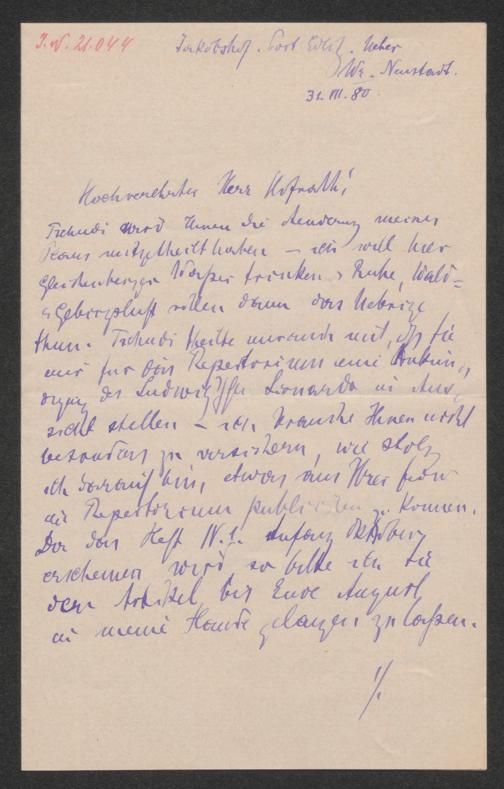 J. N. 21.044
Jakobshof. Post Edlitz. Ueber
Wr. Neustadt.
31. VII. 80
Hochverehrter Herr Hofrath!
Tschudi wird Ihnen die Aenderung meines
Planes mitgetheilt haben – ich will hier
Gleichenberger Wasser trinken & Ruhe, Wald=
& Gebirgsluft sollen dann das Uebrige
thun. Tschudi theilte mir auch mit, dß Sie
mir für das Repertorium eine
des Ludwig'schen Leonardo in Aus=
sicht stellen – ich brauche Ihnen nicht
besonders zu versichern, wie stolz
ich darauf bin, etwas aus Ihrer Feder
im Repertorium publiciren zu können.
Da das Heft IV. 1. Anfang Oktober
erscheinen wird, so bitte ich Sie
den Artikel bis Ende August
in meine Hände gelangen zu laßen.
./.